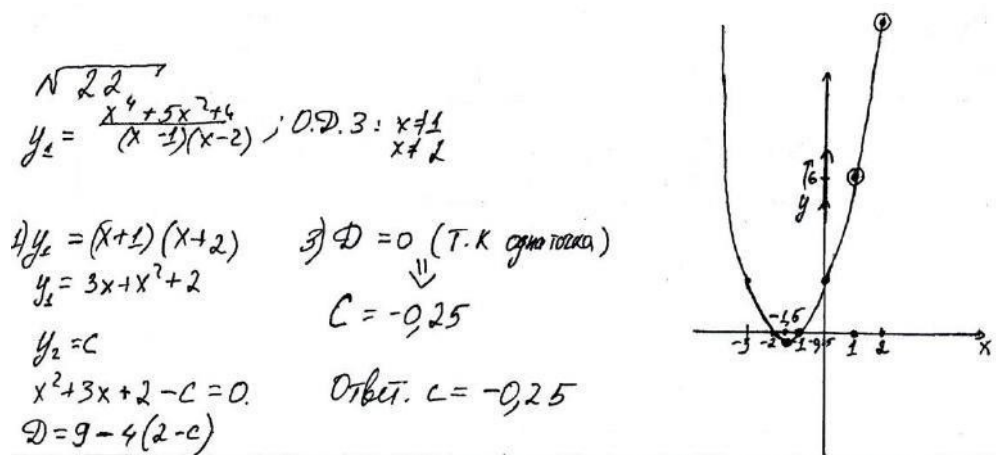 √22
y₁ = (x⁴ + 5x² + 4) / ((x - 1)(x - 2)) ; О.Д.З: x ≠ 1
x ≠ 2
1) y₁ = (x+1)(x+2)
y₁ = 3x + x² + 2
y₂ = c
x² + 3x + 2 - c = 0.
D = 9 - 4(2 - c)
3) D = 0 (т.к одна точка)
⇓
C = -0,25
Ответ. c = -0,25
6
y
-1,5
-3 -2 -1 -0,25 1 2 x